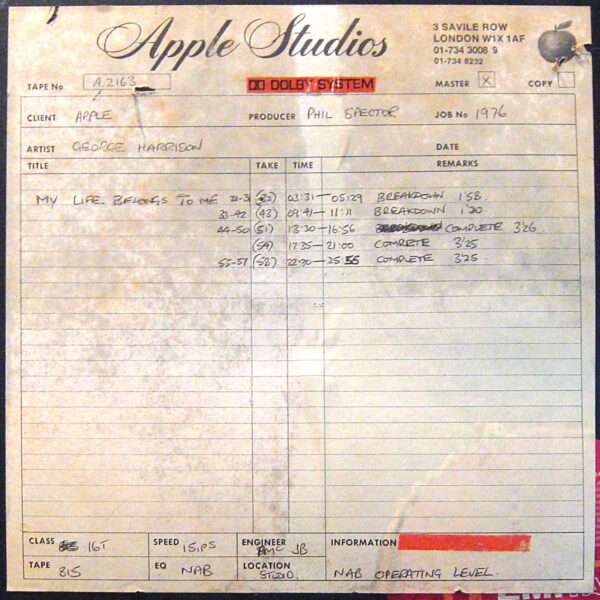 Apple Studios
3 SAVILE ROW
LONDON W1X 1AF
01-734 3008 9
01-734 8232
TAPE No A.2163 DOLBY SYSTEM MASTER X COPY
CLIENT APPLE PRODUCER PHIL SPECTOR JOB No 1976
ARTIST GEORGE HARRISON DATE
TITLE TAKE TIME REMARKS
MY LIFE BELONGS TO ME (32) 03:31-05:29 BREAKDOWN 1'58.
33-42 (43) 09:41-11:11 BREAKDOWN 1'20
44-50 (51) 13:30-16:56 COMPLETE 3'26
(54) 17:35-21:00 COMPLETE 3'25
55-57 (58) 22:30-25:55 COMPLETE 3'25
CLASS 16T SPEED 15IPS ENGINEER JB INFORMATION
TAPE 815 EQ NAB LOCATION STUDIO. NAB OPERATING LEVEL.